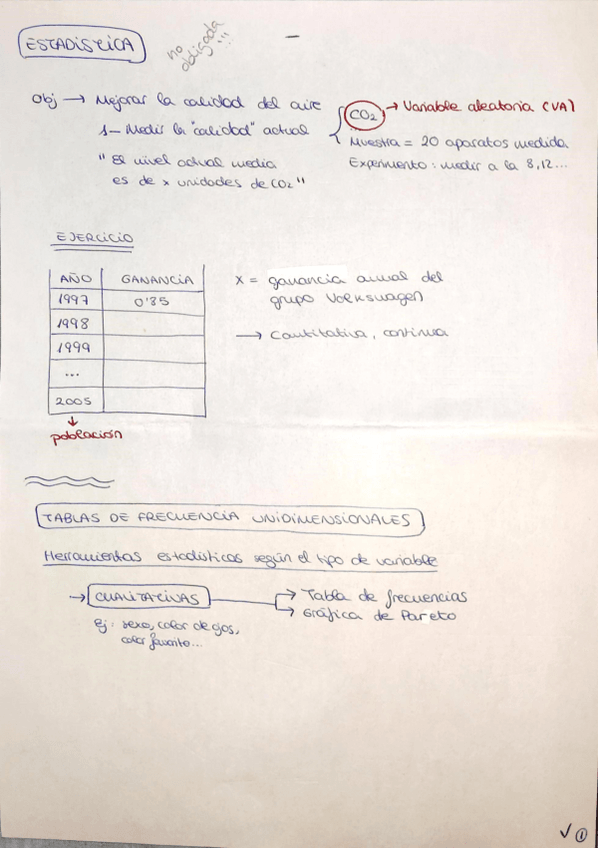 ESTADISTICA
no
obligada
!!!
Obj → Mejorar la calidad del aire
1– Medir la "calidad" actual
"El nivel actual media
es de x unidades de CO2"
CO2 → Variable aleatoria (VA)
Muestra = 20 aparatos medida
Experimento: medir a la 8,12...
EJERCICIO
AÑO GANANCIA
1997 0'85
1998
1999
...
2005
↓
población
X = ganancia anual del
grupo Volkswagen
→ Cantitativa, continua
TABLAS DE FRECUENCIA UNIDIMENSIONALES
Herramientas estadísticas según el tipo de variable
→ CUALITATIVAS
→ Tabla de frecuencias
→ Gráfica de Pareto
Ej: sexo, color de ojos,
color favorito...
✓ 1